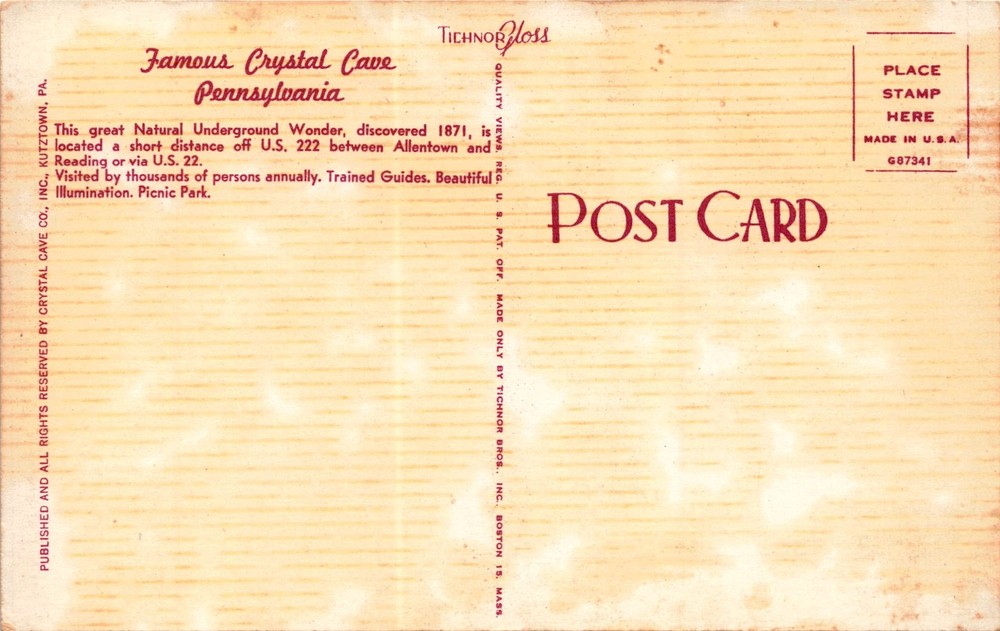 TICHNOR Gloss
Famous Crystal Cave
Pennsylvania
This great Natural Underground Wonder, discovered 1871, is
located a short distance off U.S. 222 between Allentown and
Reading or via U.S. 22.
Visited by thousands of persons annually. Trained Guides. Beautiful
Illumination. Picnic Park.
PUBLISHED AND ALL RIGHTS RESERVED BY CRYSTAL CAVE CO., INC., KUTZTOWN, PA.
QUALITY VIEWS, REG. U. S. PAT. OFF. MADE ONLY BY TICHNOR BROS., INC. BOSTON 15, MASS.
PLACE
STAMP
HERE
MADE IN U.S.A.
G87341
POST CARD